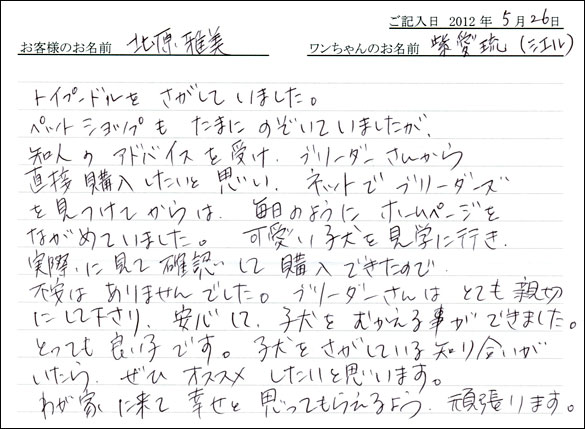 ご記入日 2012年 5月26日
お客様のお名前 北原 雅美 ワンちゃんのお名前 紫愛琉 (シエル)
トイプードルを さがして いました。
ペットショップも たまに のぞいていましたが、
知人の アドバイスを受け、ブリーダーさんから
直接購入したいと思い、ネットで ブリーダーズ
を見つけてからは、毎日のように ホームページを
ながめていました。 可愛い子犬を見学に行き、
実際に見て確認して購入できたので、
不安は ありませんでした。ブリーダーさんは とても 親切
にして下さり、安心して、子犬を むかえる事ができました。
とっても 良い子です。子犬をさがしている知り合いが
いたら、ぜひ オススメ したいと思います。
わが家に来て 幸せと 思ってもらえるよう、頑張ります。